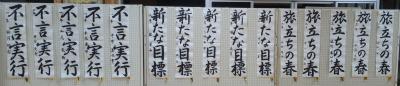 旅立ちの春
旅立ちの春
旅立ちの春
旅立ちの春
旅立ちの春
新たな目標
新たな目標
新たな目標
新たな目標
新たな目標
不言実行
不言実行
不言実行
不言実行
不言実行